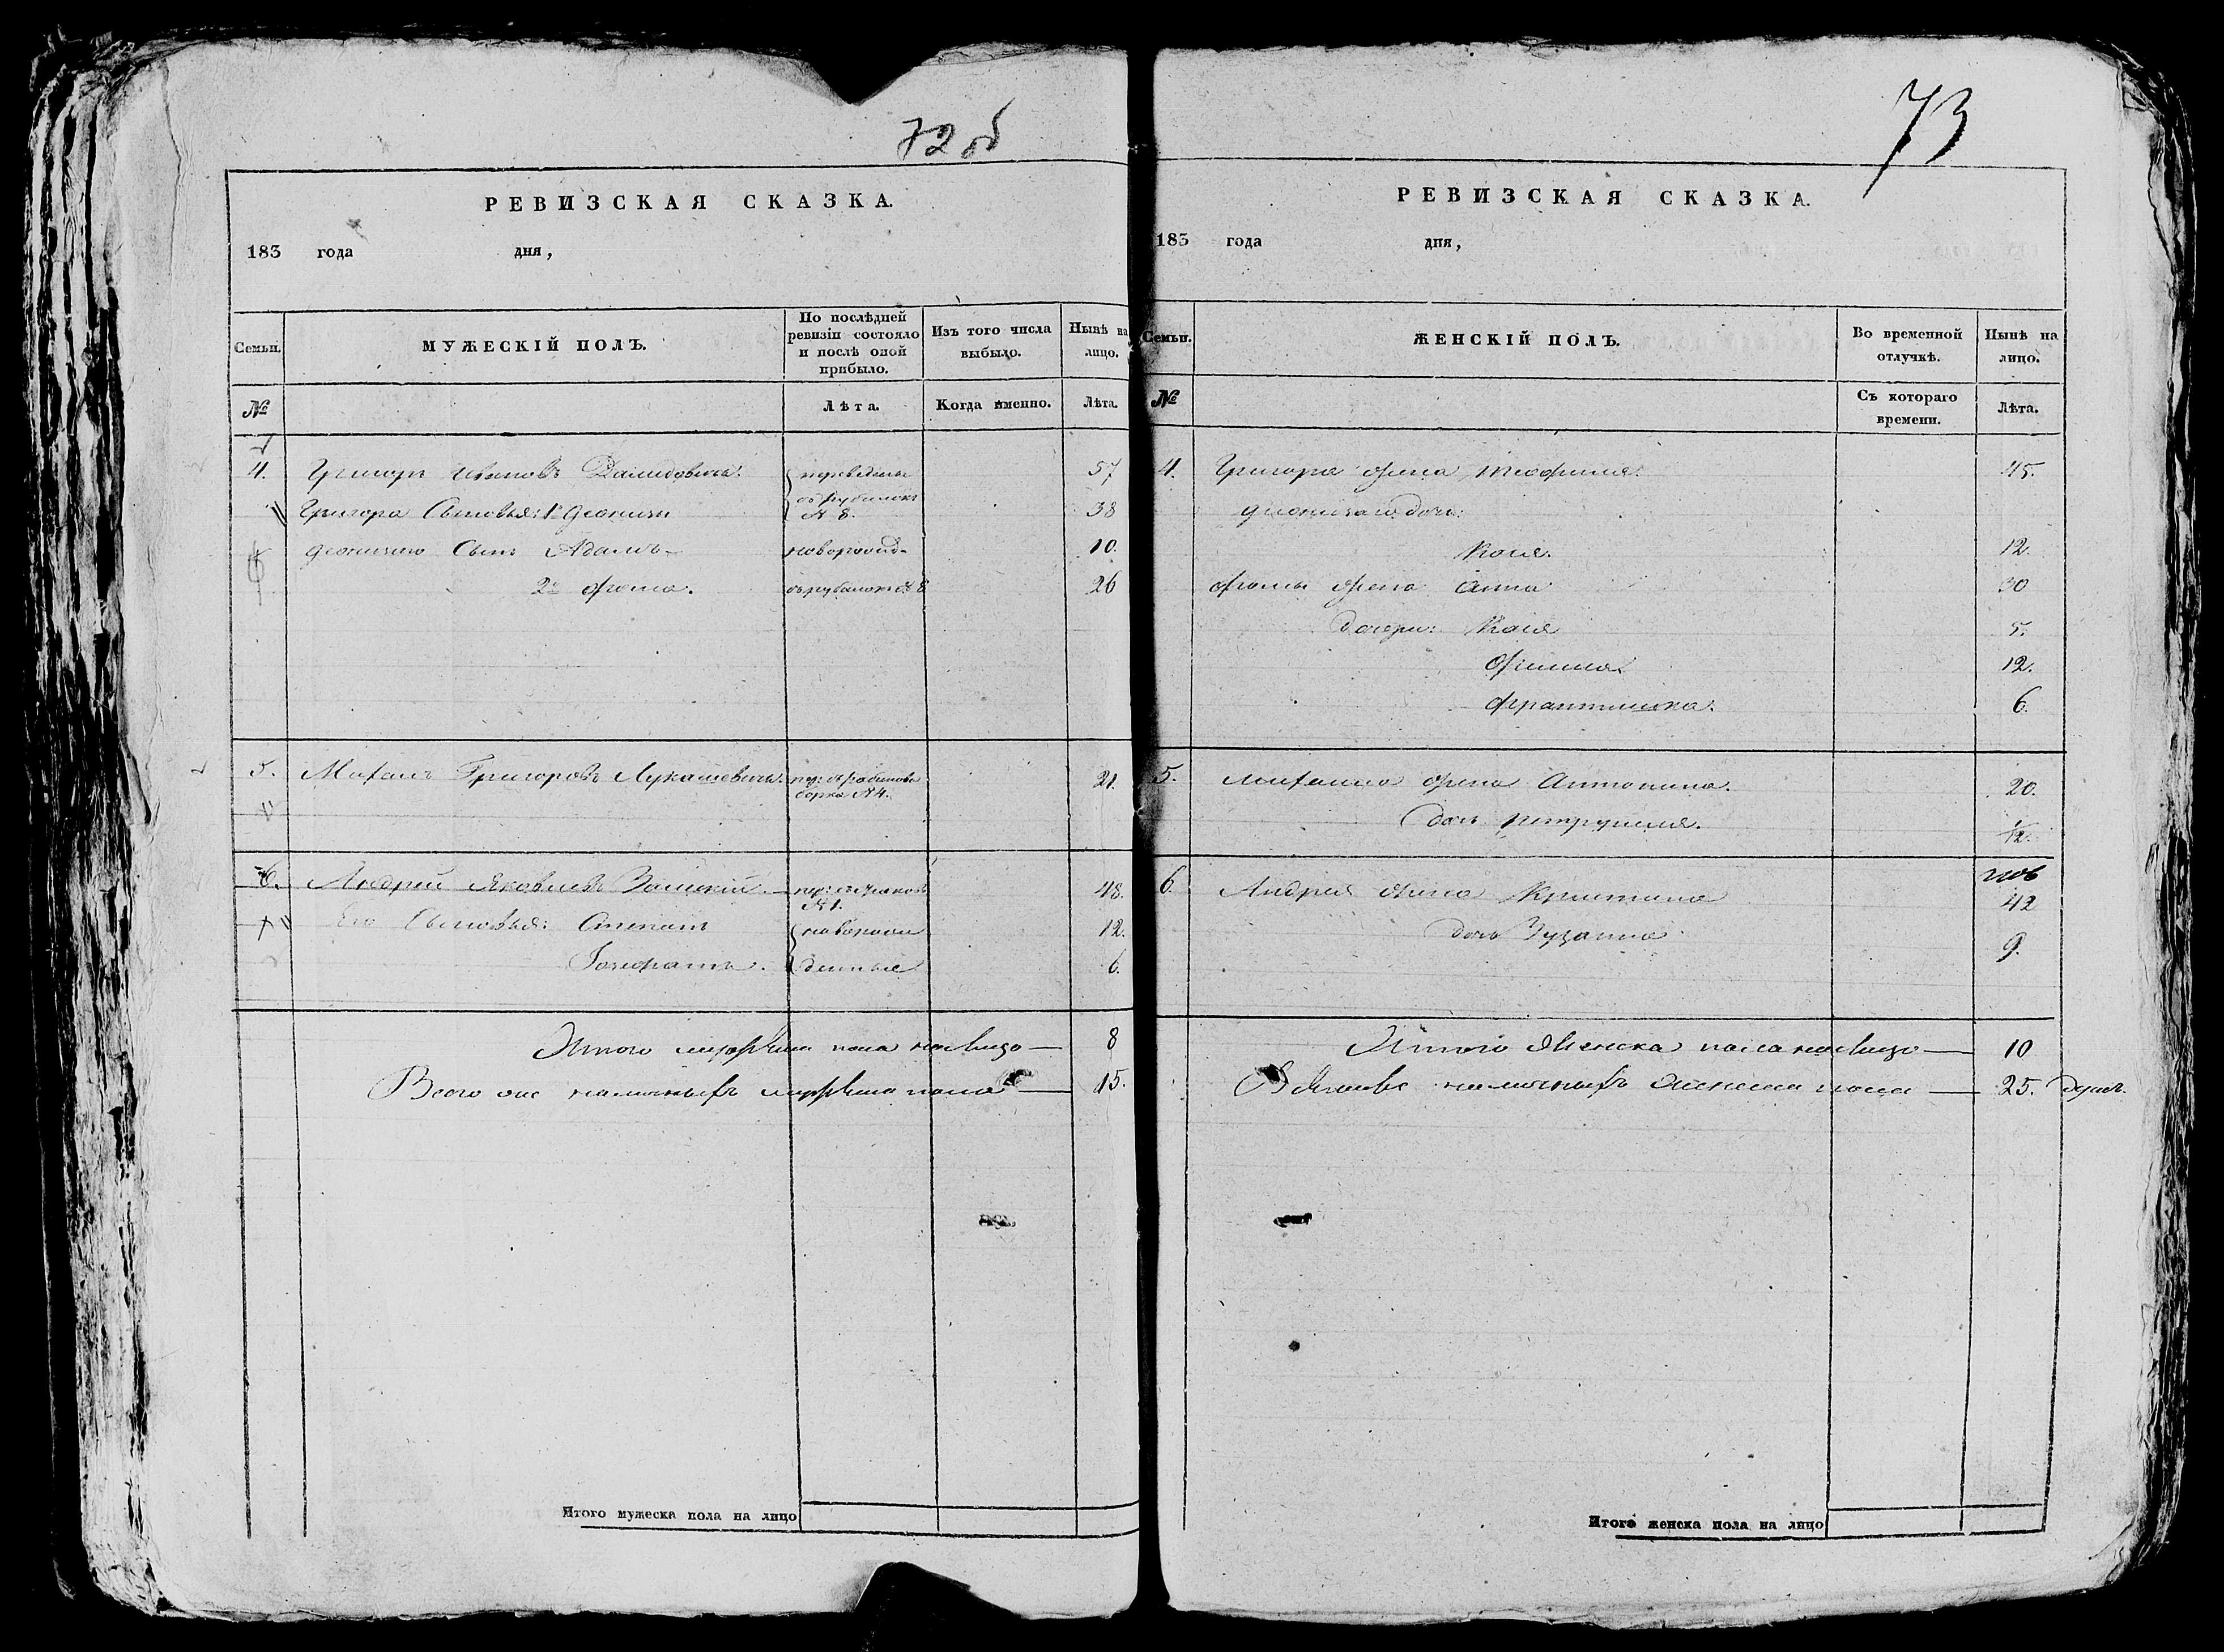 72 об
РЕВИЗСКАЯ СКАЗКА.
183 года дня,
Семьи. МУЖЕСКІЙ ПОЛЪ. По послѣдней ревизіи состояло и послѣ оной прибыло. Изъ того числа выбыло. Нынѣ на лицо.
№ Лѣта. Когда именно. Лѣта.
4. Григоръ Ивановъ переведены 57
Григора Сыновья: 1й Деонизы № 8. 38
Деонизаго Сынъ Адамъ новорожд. 10.
2й Фома. 26
5. Михаилъ Григоровъ Лукашевичъ. № 4. 21.
6. Андрей Яковлевъ № 1. 48.
Его Сыновья: Степанъ новорож 12.
Іозефатъ. денные 6.
Итого мужеска пола на лицо — 8
Всего наличныхъ мужеска пола — 15.
Итого мужеска пола на лицо
73
РЕВИЗСКАЯ СКАЗКА.
183 года дня,
Семьи. ЖЕНСКІЙ ПОЛЪ. Во временной отлучкѣ. Нынѣ на лицо.
№ Съ котораго времени. Лѣта.
4. Григора жена Теофиля. 45.
Деонизаго дочь:
12.
Фомы жена Анна 30
дочери: 5.
12.
Франтишка. 6.
5. Михаила жена Антонина. 20.
дочь Петрунеля. 1/12.
нов
6. Андрея жена Кристина 42
дочь Зузанна 9.
Итого женска пола на лицо — 10
наличныхъ женска пола — 25. душъ.
Итого женска пола на лицо